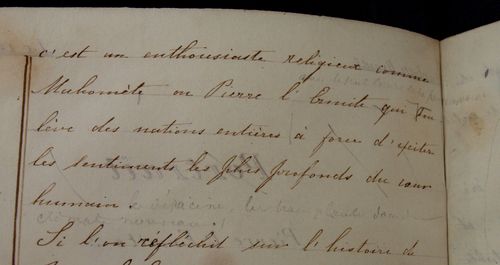 c'est un enthousiaste religieux comme
Mahomète ou Pierre l'Ermite qui sou
lève des nations entières à force d'exciter
les sentiments les plus profonds du cœur
humain
Si l'on réfléchit sur l'histoire de